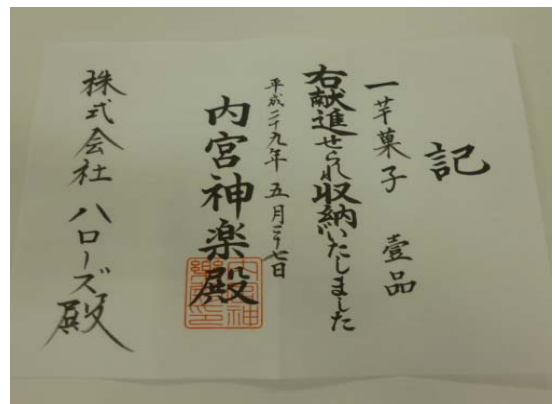 記
一 芋菓子 壹品
右献進せられ収納いたしました
平成二十九年五月二十七日
内宮神楽殿
株式会社 ハローズ 殿